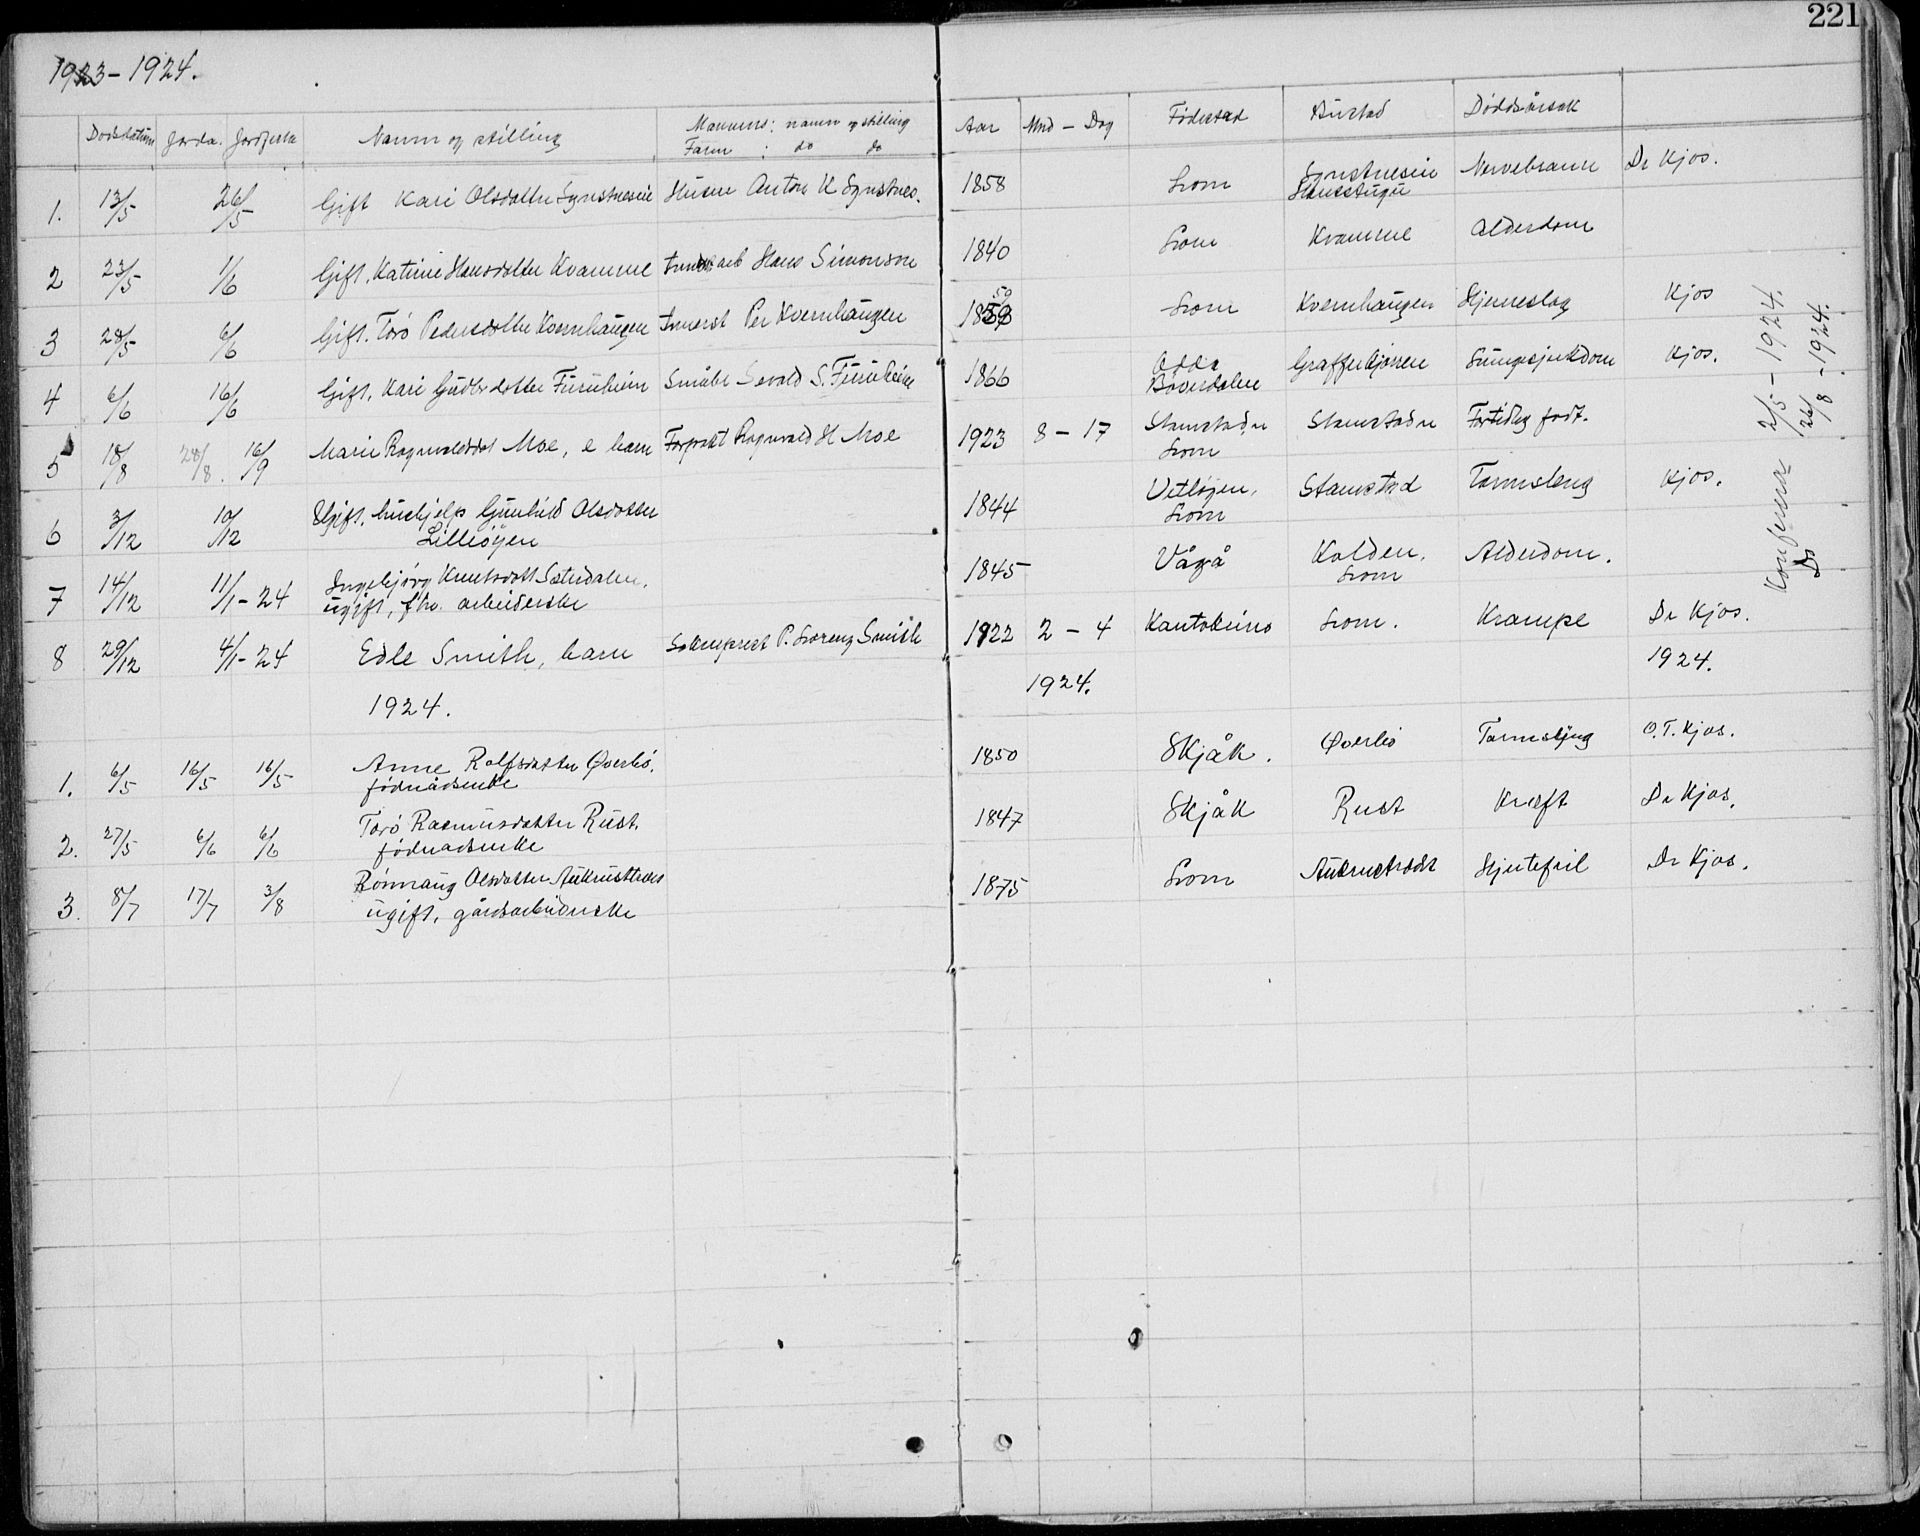 221
1923 - 1924.
Dodsdatum Jorda. Jordfesta Namn og stilling Mannens: namn og stilling Aar Mnd - Dag Fødestad Bustad Døddsårsak
Farm : do do
1. 13/5 26/5 Gift Kari Olsdotter Synstneseie Husm Anton K Synstnes. 1858 Lom Synstneseie Nervebrann Dr Kjos.
2 23/5 1/6 Gift. Katrine Hansdotter Kvamme Hans Simonson 1840 Lom Kvamme Alderdom
3 28/5 6/6 Gift. Torø Pedersdotter Kvernhaugen Inderst Per Kvernhaugen 1850 Lom Kvernhaugen Hjerneslag Kjos
4 6/6 16/6 Gift. Kari Gudbr.dotter Furuheim Småbr Sevald S. Furuheim 1866 Odda Lungesjukdom Kjos.
Bøverdalen
5 18/8 28/8. 16/9 Marie Ragnvaldsdot Moe, e barn Forpakt Ragnvald H Moe 1923 8 - 17 Stamstadn Stamstadn Fortidleg født.
Lom
6 3/12 10/12 Ugift. hushjelp Gunhild Olsdotter 1844 Stamstad Tarmsleng Kjos.
Lilleøyen Lom
7 14/12 11/1 - 24 Ingebjørg Knutsdott Sæterdalen. 1845 Vågå Kolden. Alderdom.
ugift, fhv. arbeiderske Lom
8 29/12 4/1 - 24 Edle Smith, barn Sokneprest P. Lorenz Smith 1922 2 - 4 Kautokeino Lom. Krampe Dr Kjos.
1924. 1924. 1924.
1. 6/5 16/5 16/5 Anne Rolfsdotter Øverbø. 1850 Skjåk. Øverbø Tarmslyng O.T. Kjos.
fødrådsenke
2. 27/5 6/6 6/6 Torø Rasmusdotter Rust. 1847 Skjåk Rust Kræft Dr Kjos.
fødradsenke
3. 8/7 17/7 3/8 Rønnaug Olsdotter Aukrusttrædet 1875 Lom Aukrusttrædet Hjertefeil Dr Kjos.
ugift, gårdsarbeiderske
Konferera 2/5 - 1924.
Do 26/8 - 1924.